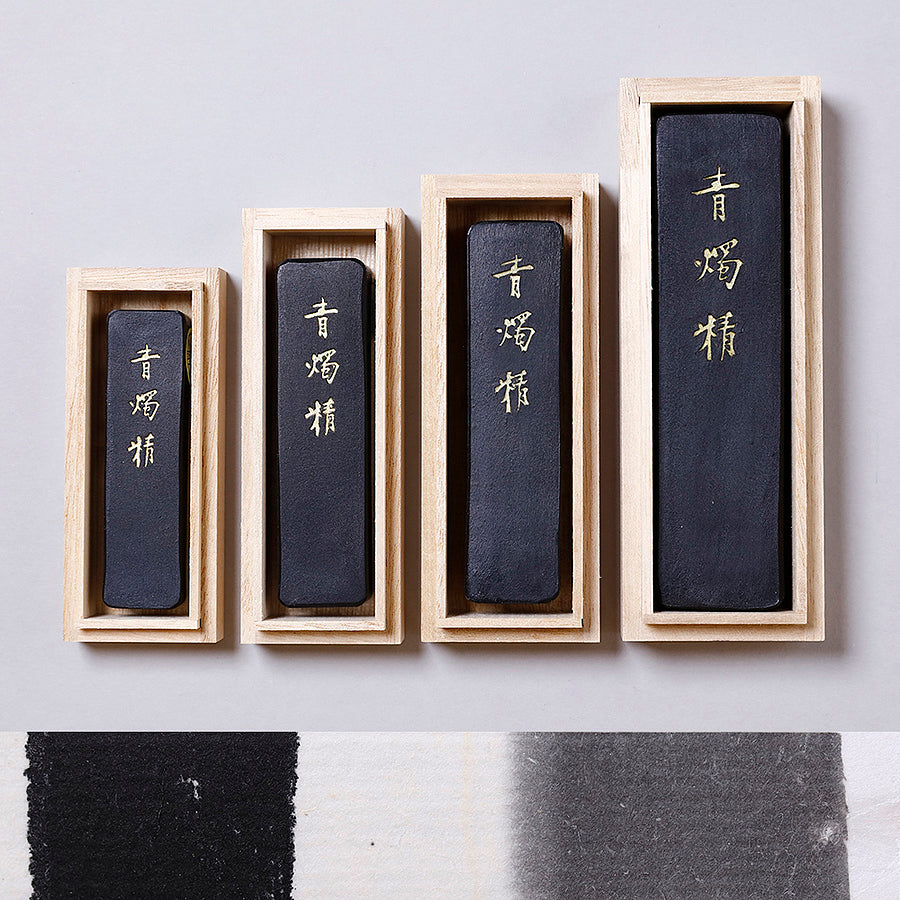 青燭精
青燭精
青燭精
青燭精